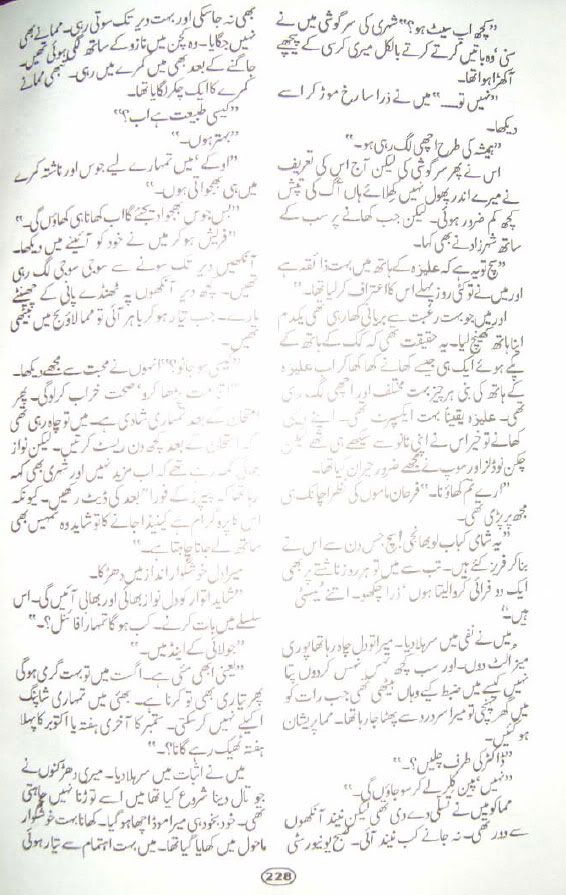 "کچھ اپ سیٹ ہو؟" شہری کی سرگوشی میں نے
سنی، وہ باتیں کرتے کرتے بالکل میری کرسی کے پیچھے
آکھڑا ہوا تھا۔
"نہیں تو۔۔۔" میں نے ذرا سا رخ موڑ کر اسے
دیکھا۔
"ہمیشہ کی طرح اچھی لگ رہی ہو۔"
اس نے پھر سرگوشی کی لیکن آج اس کی تعریف
نے میرے اندر پھول نہیں کھلائے ہاں آگ کی تپش
کچھ کم ضرور ہوئی۔ لیکن جب کھانے پر سب کے
ساتھ شہزاد نے بھی کہا۔
"سچ تو یہ ہے کہ علیزہ کے ہاتھ میں بہت ذائقہ ہے
اور میں نے تو کئی روز پہلے اس کا اعتراف کر لیا تھا۔"
اور میں جو بہت رغبت سے بریانی کھا رہی تھی یکدم
اپنا ہاتھ کھینچ لیا۔ یہ حقیقت تھی کہ کک کے ہاتھ کے
پکے ہوئے ایک ہی جیسے کھانے کھا کھا کر اب علیزہ
کے ہاتھ کی بنی ہر چیز بہت مختلف اور اچھی لگ رہی
تھی۔ علیزہ یقیناً بہت ایکسپرٹ تھی۔ اپنے
کھانے تو خیر اس نے اپنی نانو سے سیکھے ہی تھے لیکن
چکن نوڈلز اور سوپ نے مجھے ضرور حیران کیا تھا۔
"ارے تم کھاؤ نا۔" فرحان ماموں کی نظر اچانک ہی
مجھ پر پڑی تھی۔
"یہ شامی کباب لو بھانجی! سچ جس دن سے اس نے
بنا کر فریز کئے ہیں۔ تب سے میں تو ہر روز ناشتے پر بھی
ایک دو فرائی کروا لیتا ہوں، ذرا چکھو۔ اتنے ٹیسٹی
ہیں۔"
میں نے نفی میں سر ہلا دیا۔ میرا تو دل چاہ رہا تھا پوری
میز الٹ دوں۔ اور سب کچھ تہس نہس کر دوں پتا
نہیں کیسے میں ضبط کیے وہاں بیٹھی تھی جب رات کو
میں گھر پہنچی تو میرا سر درد سے پھٹا جا رہا تھا۔ مما پریشان
ہو گئیں۔
"ڈاکٹر کی طرف چلیں؟۔"
"نہیں، پین کلر لے کر سو جاؤں گی۔"
مما کو میں نے تسلی دے دی تھی لیکن نیند آنکھوں
سے دور تھی۔ نہ جانے کب نیند آئی۔ صبح یونیورسٹی
بھی نہ جا سکی اور بہت دیر تک سوتی رہی۔ مما نے بھی
نہیں جگایا۔ وہ کچن میں نازو کے ساتھ لگی ہوئی تھیں۔
جاگنے کے بعد بھی میں کمرے میں رہی۔ تبھی مما نے
کمرے کا ایک چکر لگایا تھا۔
"کیسی طبیعت ہے اب؟"
"بہتر ہوں۔"
"اوکے، میں تمہارے لیے جوس اور ناشتہ کمرے
میں ہی بھجواتی ہوں۔"
"بس جوس بھجوا دیجئے گا اب کھانا ہی کھاؤں گی۔"
فریش ہو کر میں نے خود کو آئینے میں دیکھا۔
آنکھیں دیر تک سونے سے سوجی سوجی لگ رہی
تھیں۔ کچھ دیر آنکھوں پہ ٹھنڈے پانی کے چھینٹے
مارے۔ جب تیار ہو کر باہر آئی تو مما لاؤنج میں بیٹھی
تھیں۔
انہوں نے محبت سے مجھے دیکھا۔
"اتنا مت پڑھا کرو، صحت خراب کر لوگی۔ پھر
امتحان کے بعد تمہاری شادی ہے۔ میں تو چاہ رہی تھی
امتحان کے بعد کچھ دن ریسٹ کرتیں۔ لیکن نواز
بھائی کہہ رہے تھے کہ اب مزید نہیں اور شہری بھی کہہ
رہا تھا کہ پیپرز کے فوراً بعد کی ڈیٹ رکھیں۔ کیونکہ
اس کا پروگرام ہے کینیڈا جانے کا تو شاید وہ تمہیں بھی
ساتھ لے جانا چاہتا ہے۔"
میرا دل خوشگوار انداز میں دھڑکا۔
"شاید اتوار کو دل نواز بھائی اور بھابی آئیں گی۔ اس
سلسلے میں بات کرنے۔ کب ہو گا تمہارا فائنل؟۔"
"جولائی کے اینڈ میں۔"
"یعنی ابھی مئی ہے۔ اگست میں تو بہت گرمی ہوگی
پھر تیاری بھی تو کرنا ہے۔ بھئی میں تمہاری شاپنگ
اکیلے نہیں کر سکتی۔ ستمبر کا آخری ہفتہ یا اکتوبر کا پہلا
ہفتہ ٹھیک رہے گا نا؟۔"
میں نے اثبات میں سر ہلا دیا۔ میری دھڑکنوں نے
جو تال دینا شروع کیا تھا میں اسے توڑنا نہیں چاہتی
تھی۔ خود بخود ہی میرا موڈ اچھا ہو گیا۔ کھانا بہت خوشگوار
ماحول میں کھایا گیا تھا۔ میں بہت اہتمام سے تیار ہوئی
228